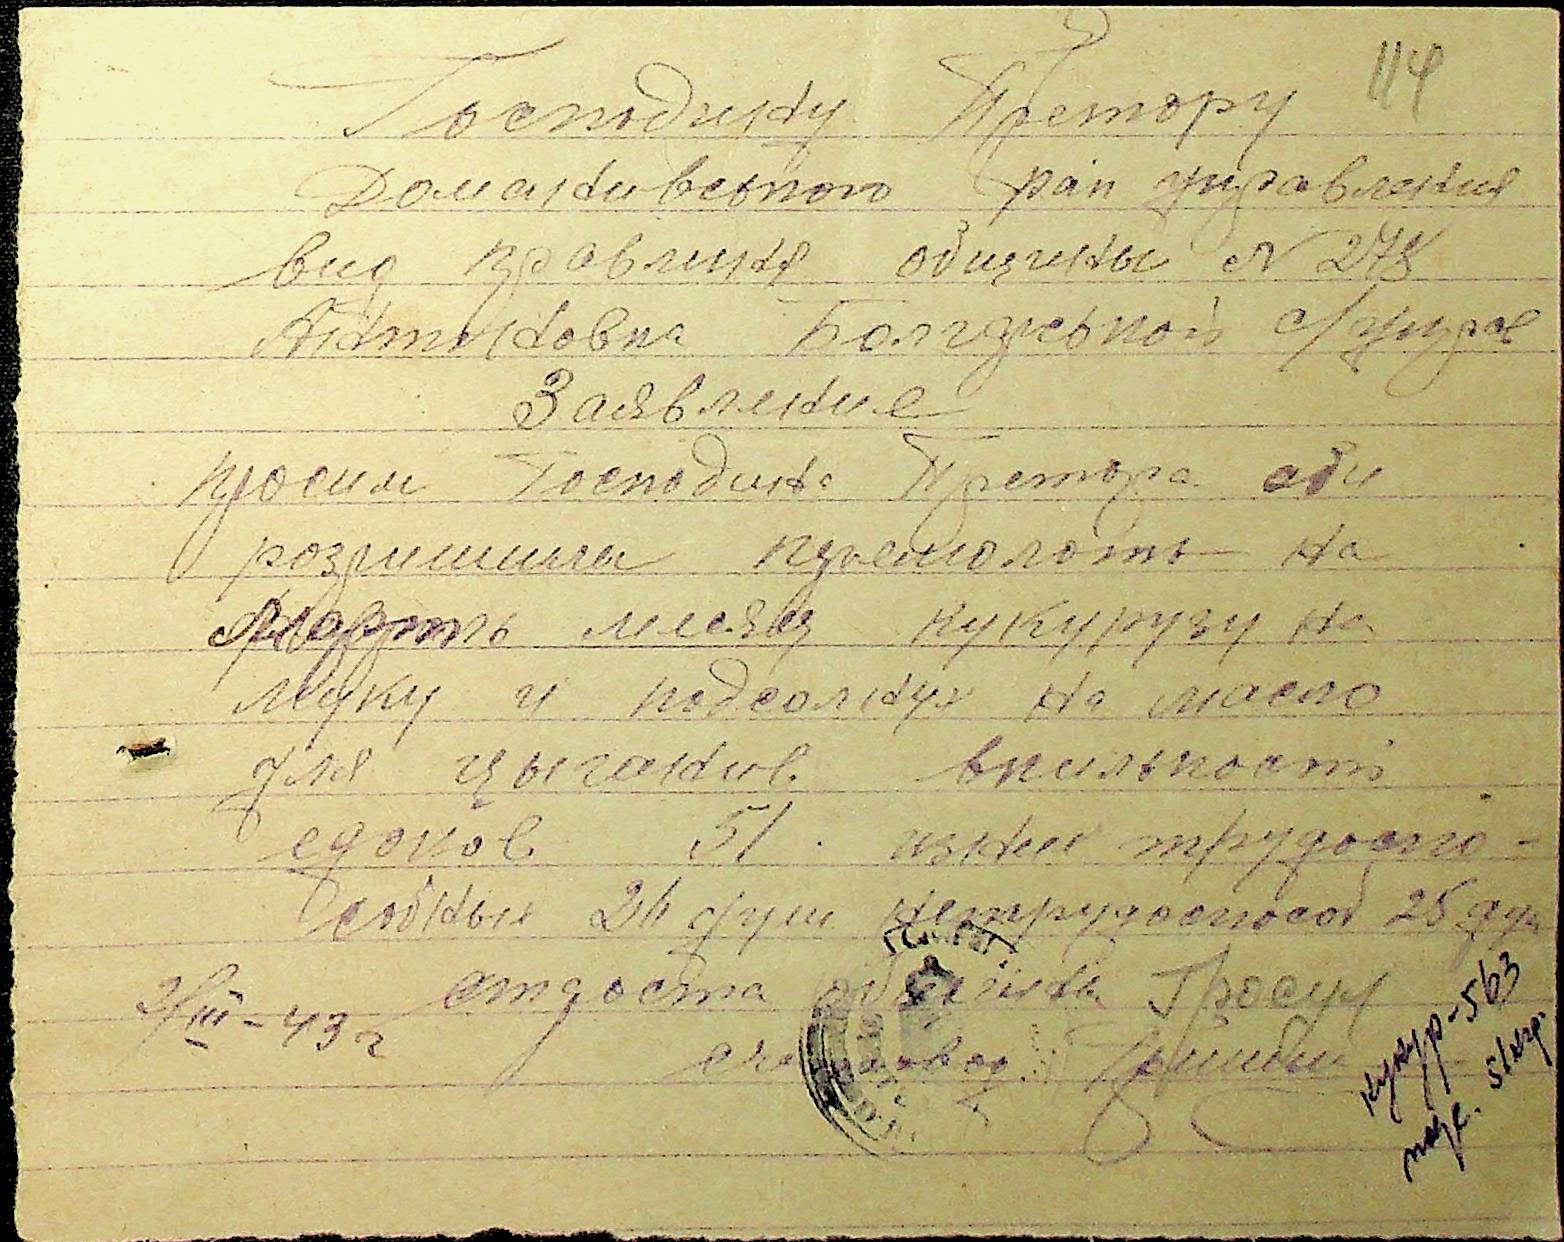 114
Господину Претору
Доманивського рай управления
вид правления общины N 278
Антоновка Болгарськой с/управ
Заявление
просим Господина Претора аби
розришили премолоть на
месяц кукурузу на
муку и подсолнух на масло
для цыганив. вкилькости
едоков 51. изних трудоспо-
собных 26 душ нетрудоспособ 25 душ
2/III-43 г староста общины Гросул
счетовод
кукур-563
подс. 51кгр.